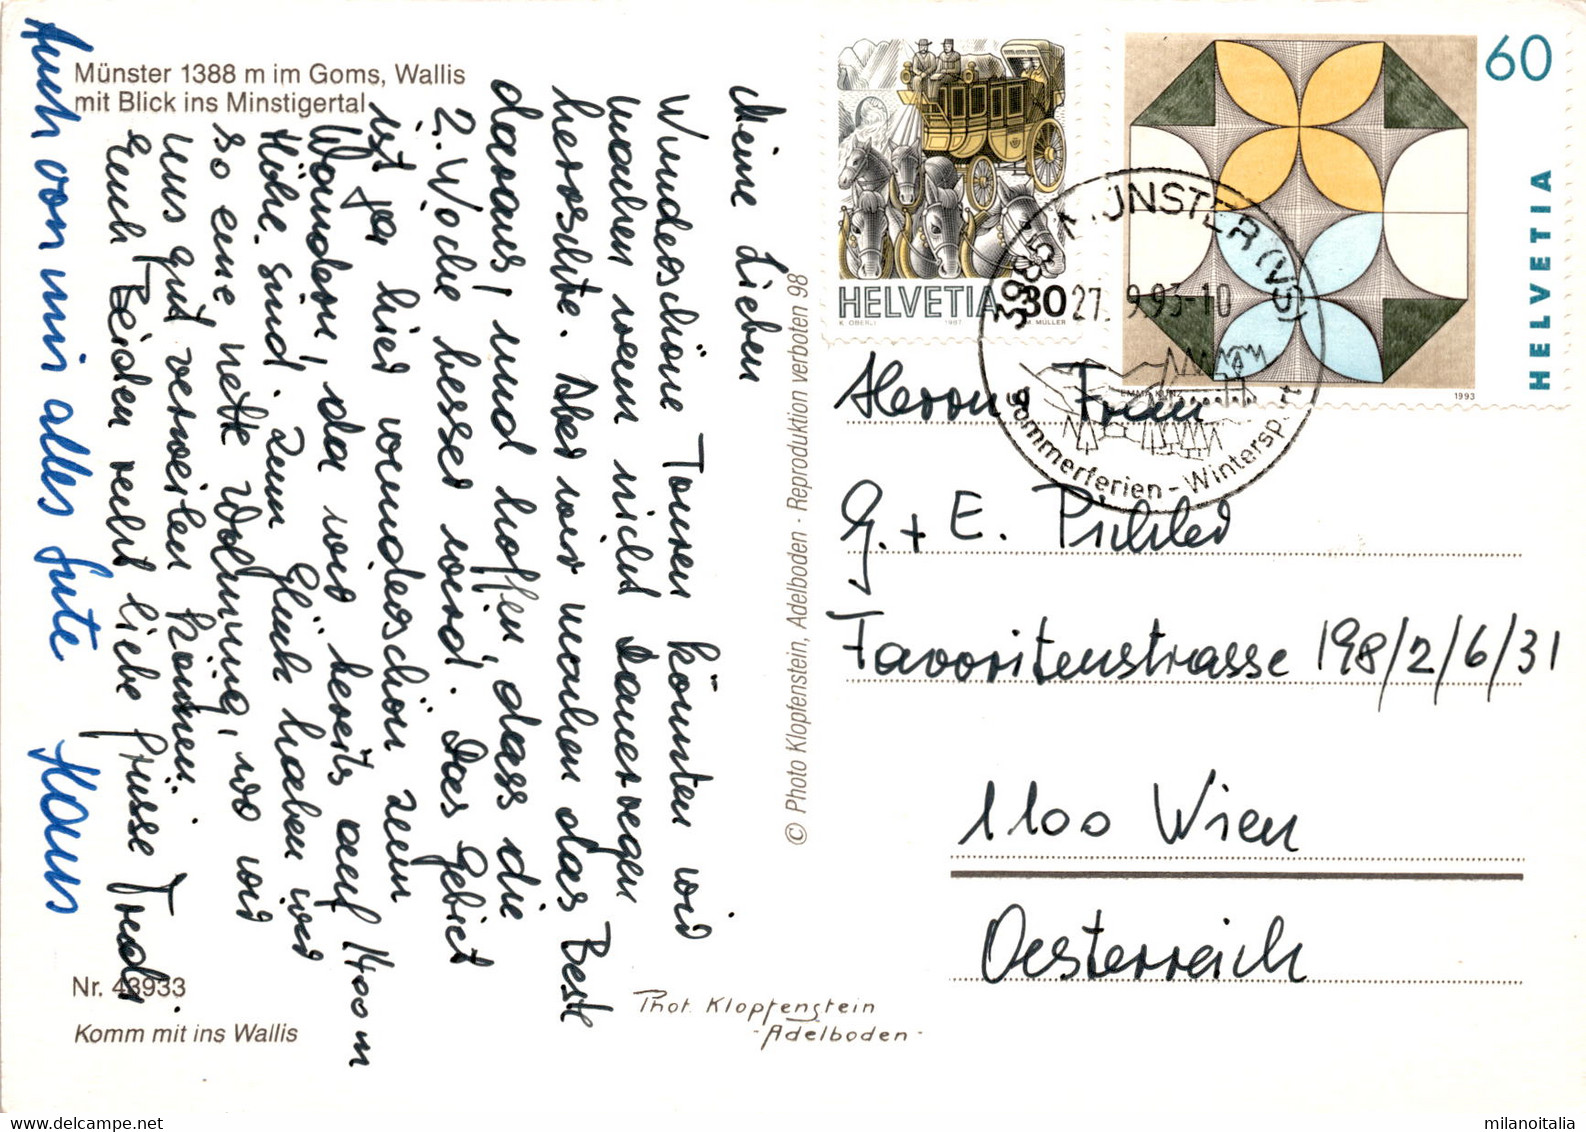 Münster 1388 m im Goms, Wallis
mit Blick ins Minstigertal
Meine Lieben
Wunderschöne Touren könnten wir
machen wenn nicht Dauerregen
herrschte. Aber wir machen das Beste
daraus, und hoffen, dass die
2. Woche besser wird. Das Gebiet
ist ja hier wunderschön zum
Wandern, da wir bereits auf 1400 m
Höhe sind. Zum Glück haben wir
so eine nette Wohnung, wo wir
uns gut verweilen können.
Euch Beiden recht liebe Grüsse Trudi.
Auch von mir alles Gute Hans
Nr. 43933
Komm mit ins Wallis
© Photo Klopfenstein, Adelboden - Reproduktion verboten 98
Phot. Klopfenstein
-Adelboden-
HELVETIA 30
K. OBERLI 1987 M. MÜLLER
60
HELVETIA
EMMA KUNZ 1993
3985 MÜNSTER (VS)
27. 9.93-10
Sommerferien - Wintersport
Herrn Frau
G. + E. Pichler
Favoritenstrasse 198/2/6/31
1100 Wien
Oesterreich
milanoitalia